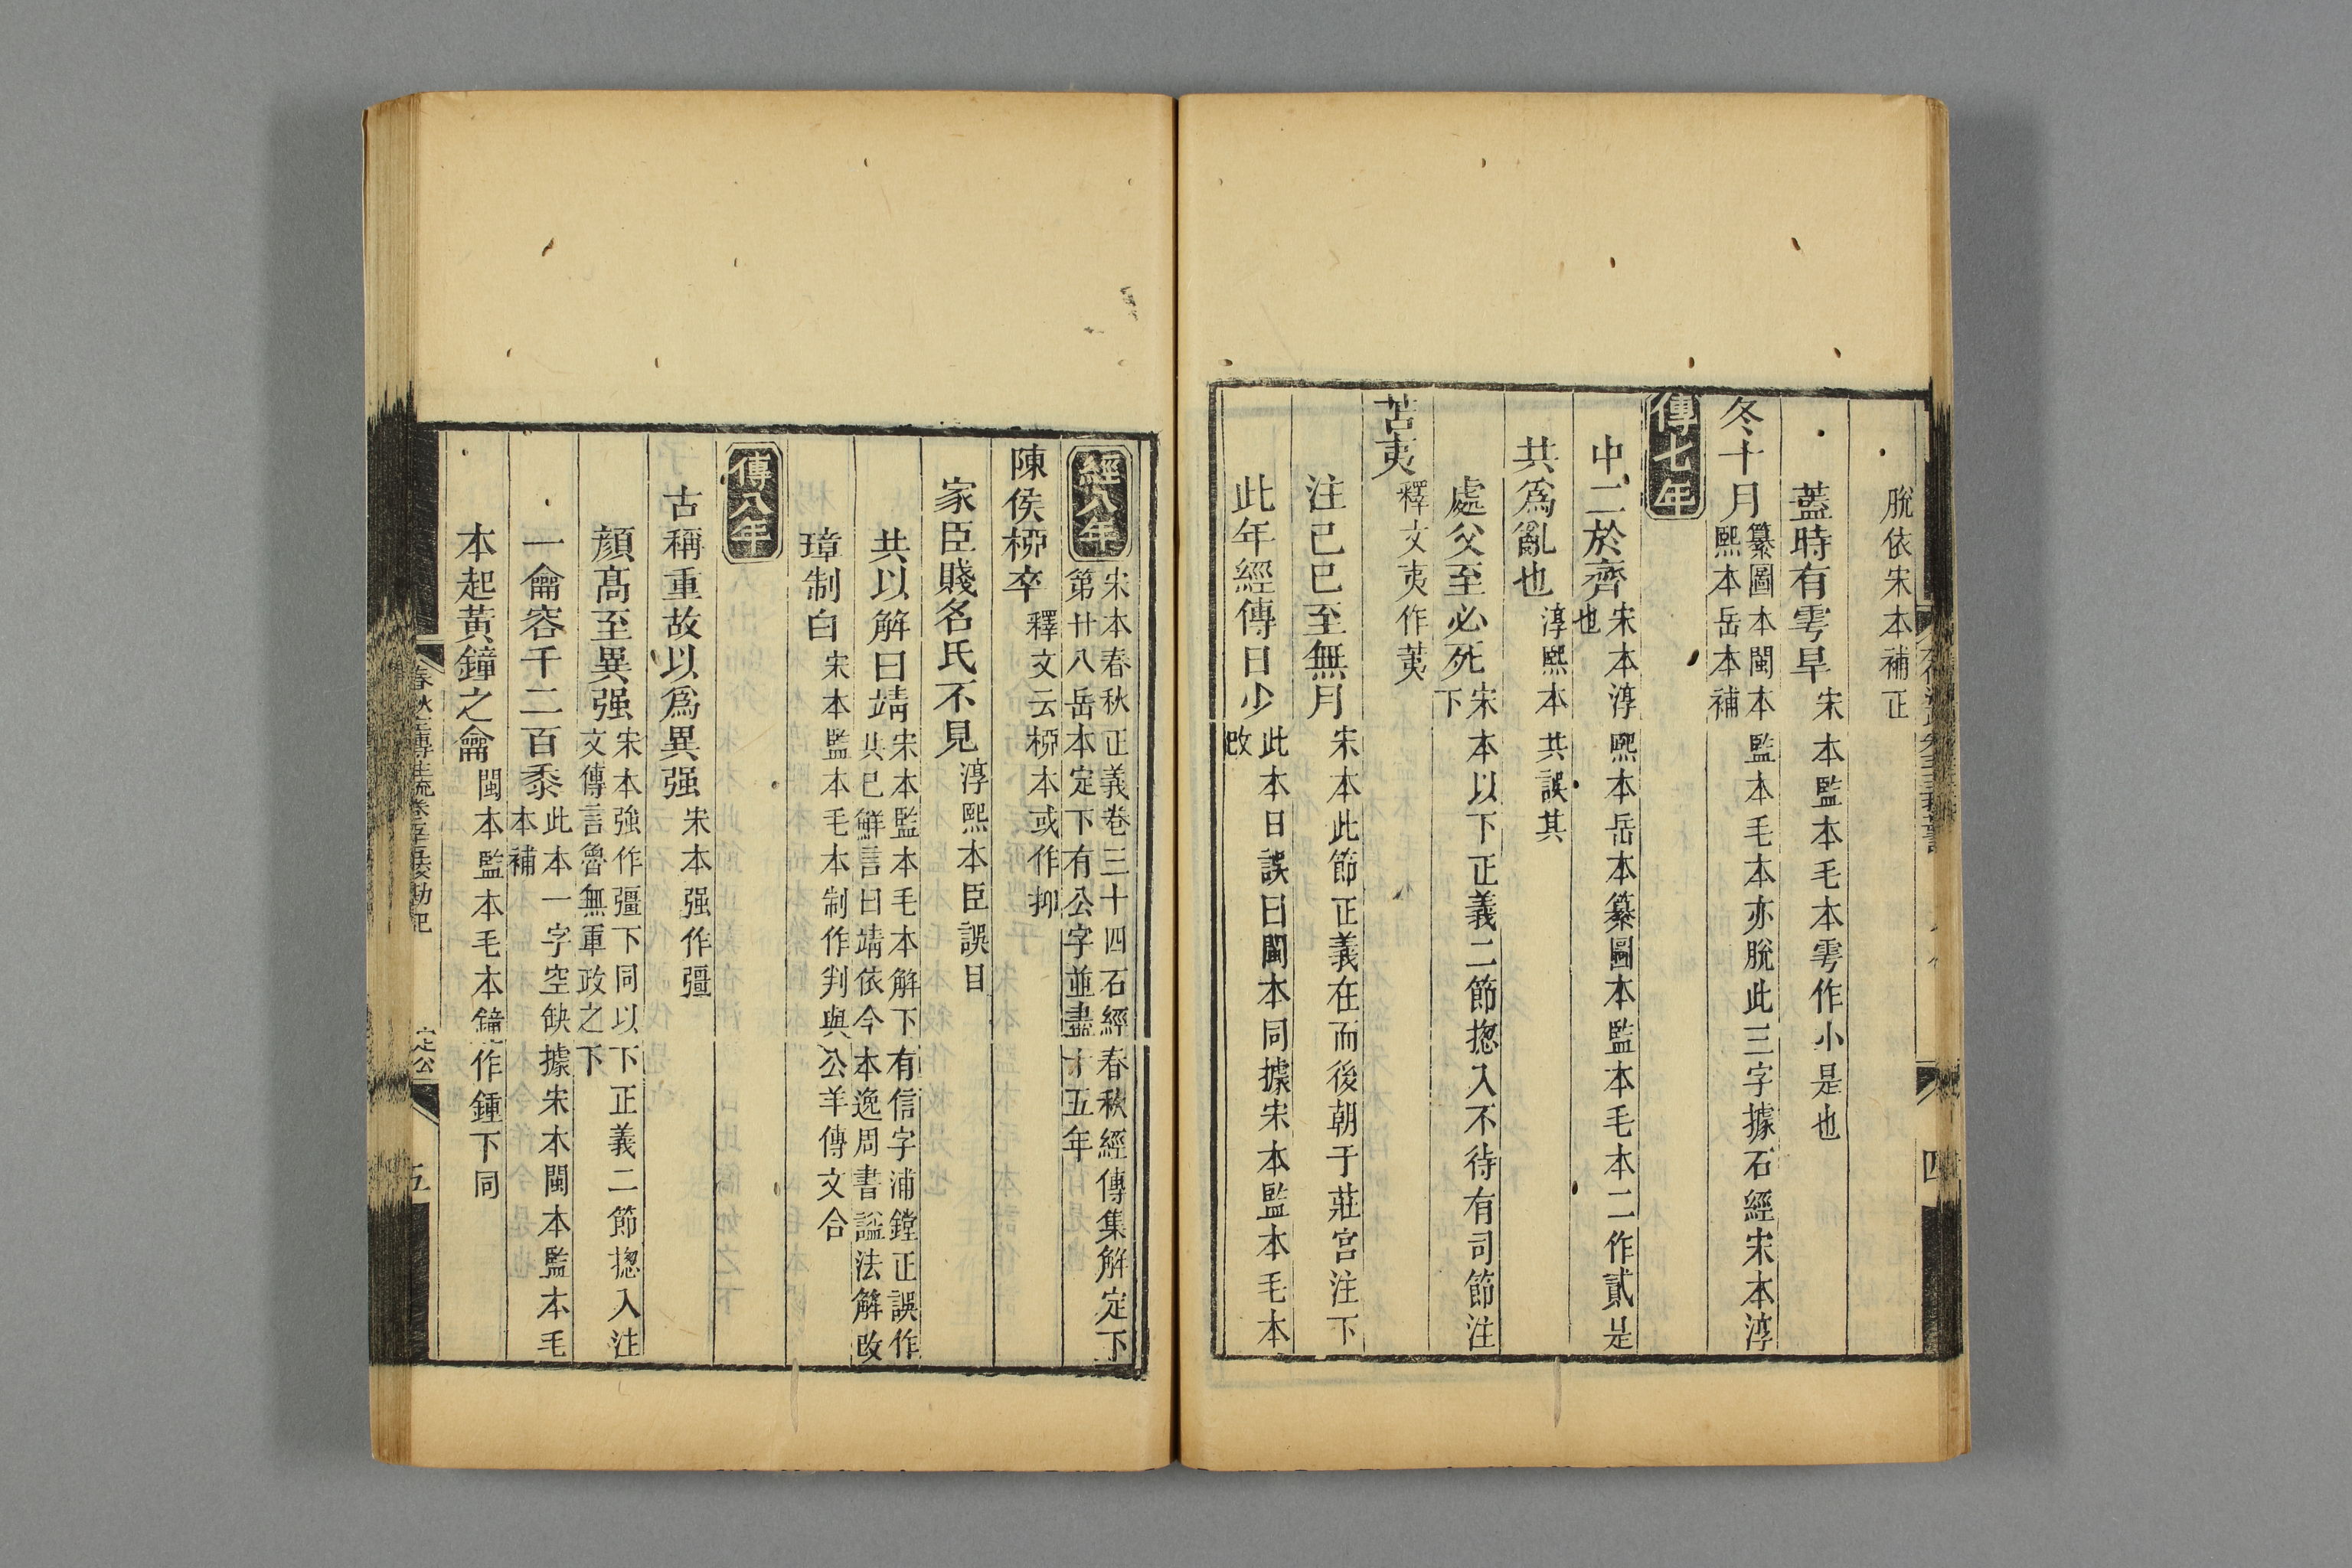 脫依宋本補正
蓋時有雩旱宋本監本毛本雩作小是也
冬十月纂圖本閩本監本毛本亦脫此三字據石經宋本淳
熙本岳本補
傳七年
中二於齊宋本淳熙本岳本纂圖本監本毛本二作貳是
也
共爲亂也淳熙本共誤其
處父至必死宋本以下正義二節揔入不待有司節注
下
苫夷釋文夷作荑
注己巳至無月宋本此節正義在而後朝于莊宮注下
此年經傳日少此本日誤曰閩本同據宋本監本毛本
改
四
經八年宋本春秋正義卷三十四石經春秋經傳集解定下
第廿八岳本定下有公字並盡十五年
陳侯栁卒釋文云栁本或作抑
家臣賤名氏不見淳熙本臣誤目
共以解曰靖宋本監本毛本解下有信字浦鏜正誤作
共已鮮言曰靖依今本逸周書謚法解改
璋制白宋本監本毛本制作判與公羊傳文合
傳八年
古稱重故以爲異强宋本强作彊
顏高至異强宋本強作彊下同以下正義二節揔入注
文傳言魯無軍政之下
一龠容千二百黍此本一字空缺據宋本閩本監本毛
本補
本起黃鐘之龠閩本監本毛本鐘作鍾下同
春秋左傳注疏卷五十五挍勘記
定公
五